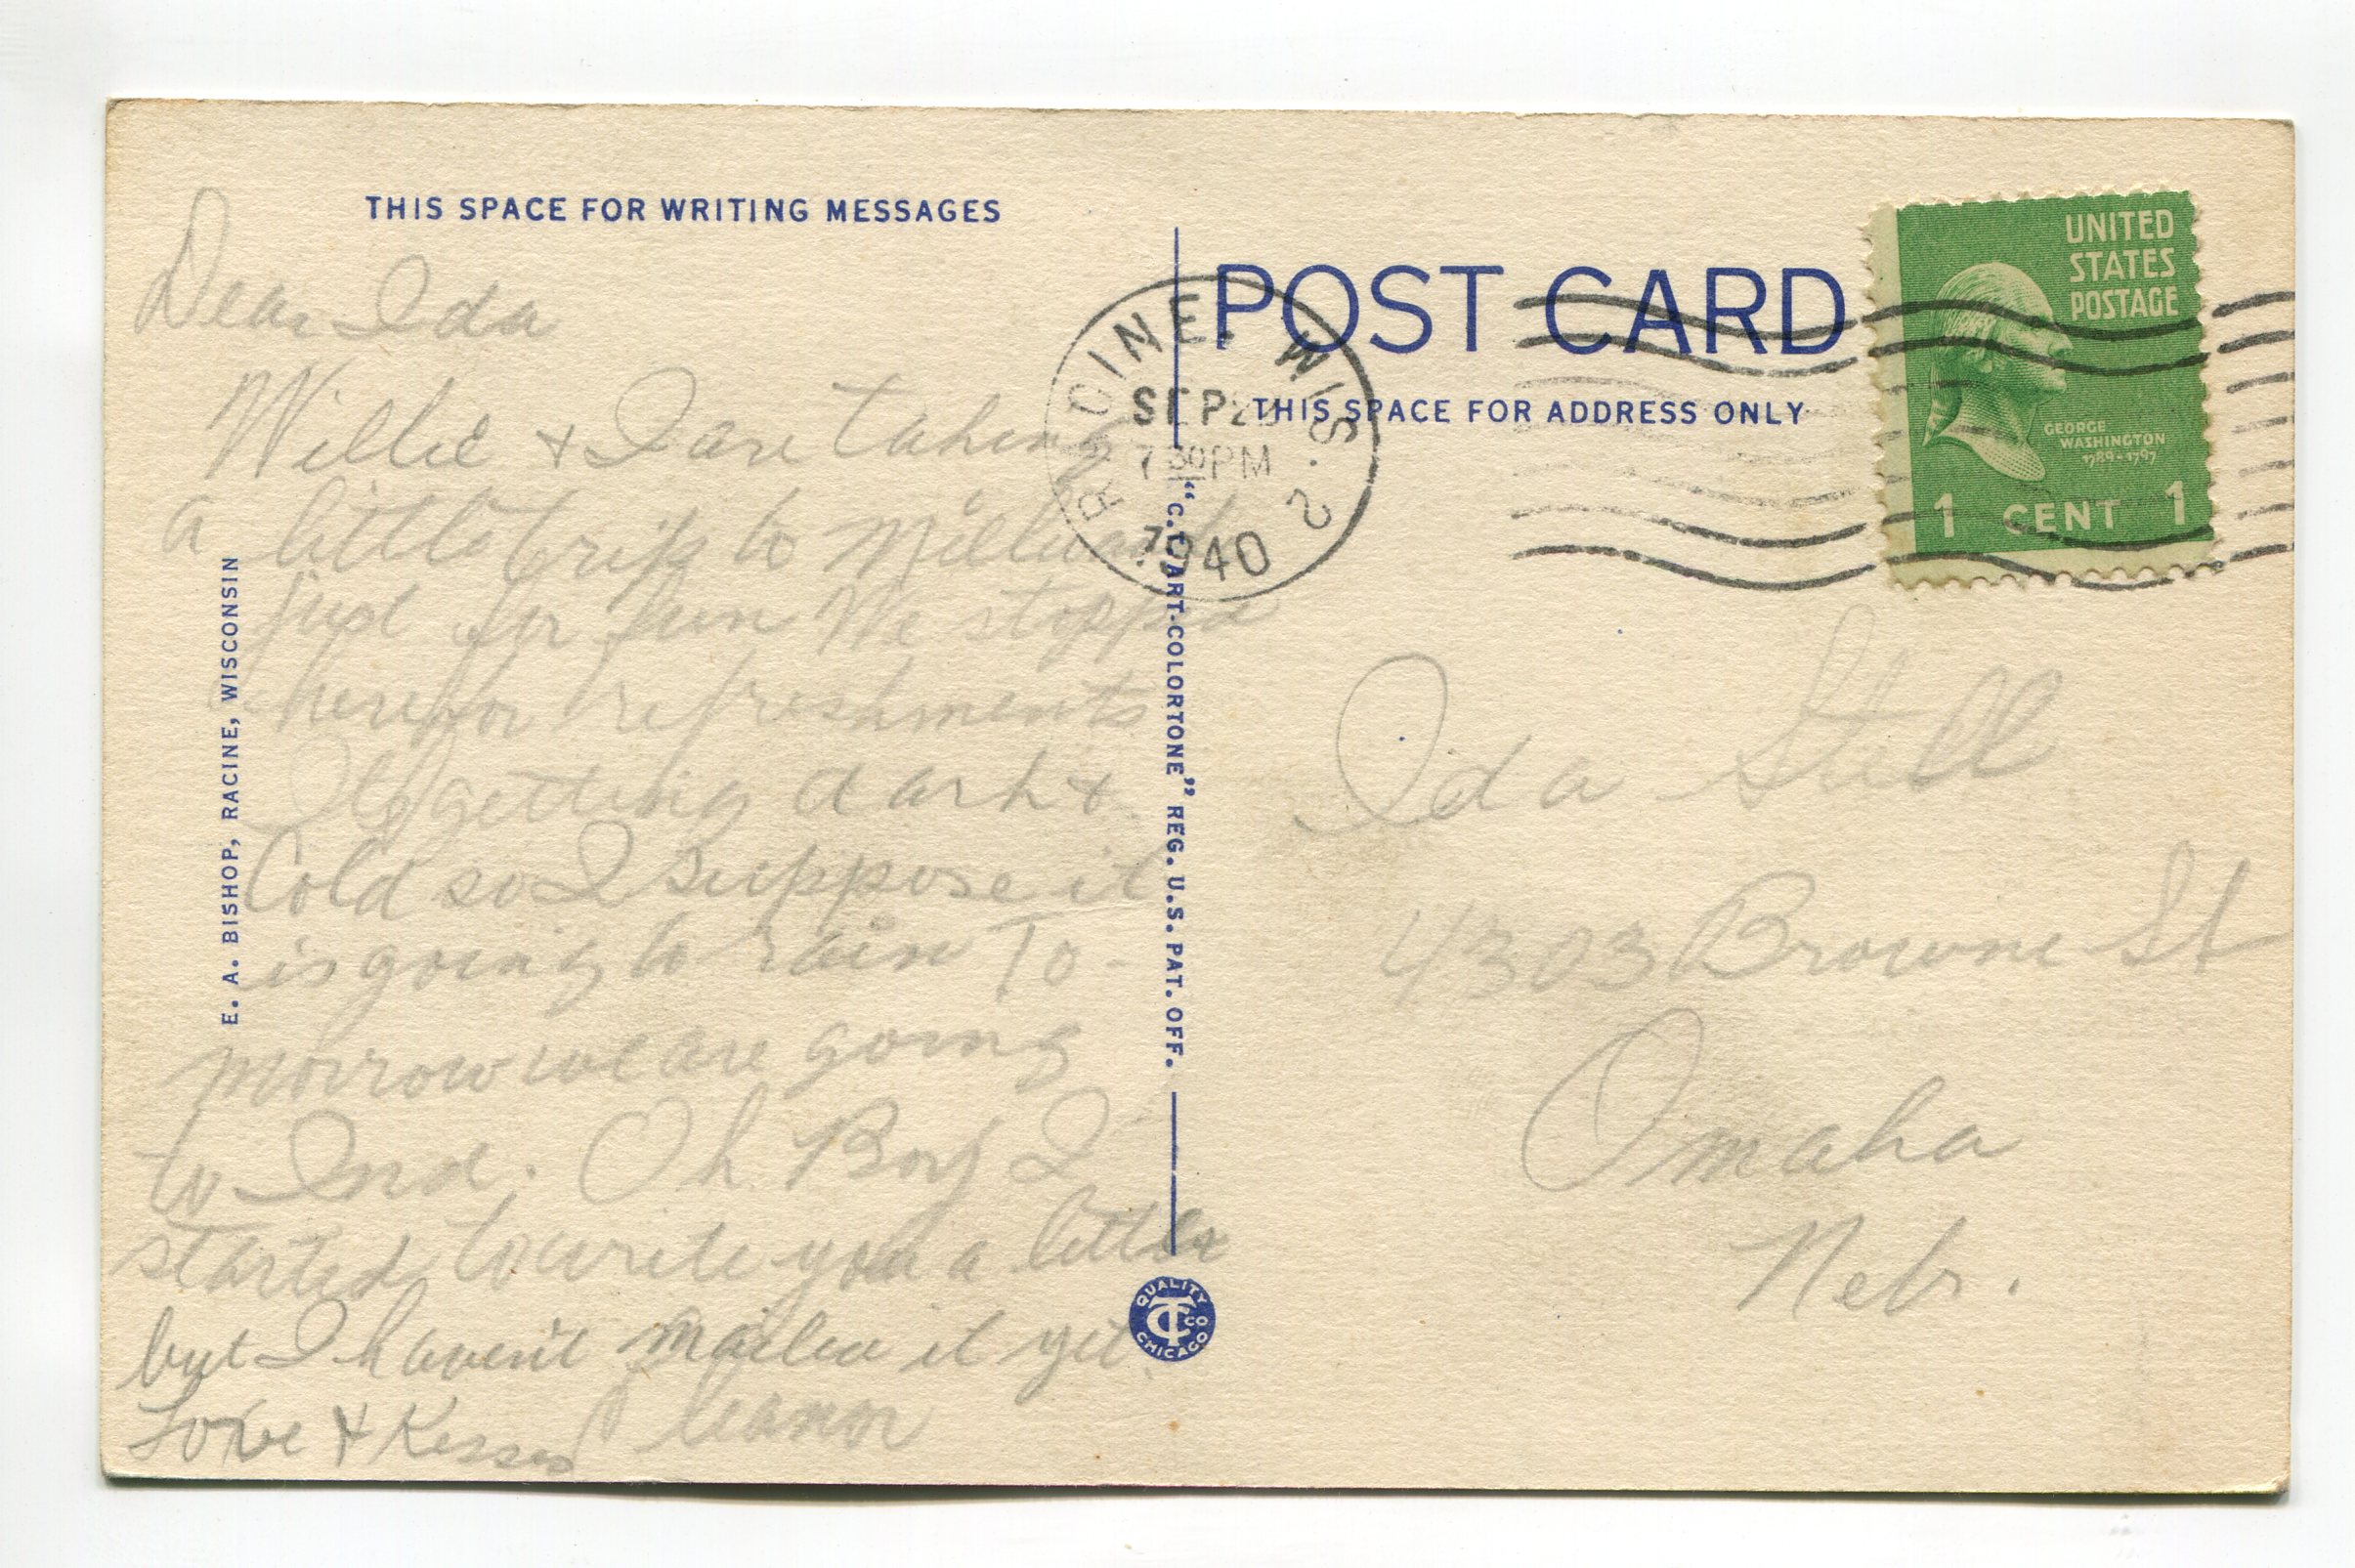 THIS SPACE FOR WRITING MESSAGES
Dear Ida
Willie + I are taking
a little trip to
just for fun We stopped
here for refreshments
Its getting dark +
Cold so I suppose it
is going to rain To-
morrow we are going
to Ind. Oh Boy I
started to write you a letter
but I haven't mailed it yet
Love + Kisses Eleanor
E. A. BISHOP, RACINE, WISCONSIN
"C.T. ART-COLORTONE" REG. U.S. PAT. OFF.
QUALITY
CT CO
CHICAGO
POST CARD
THIS SPACE FOR ADDRESS ONLY
RACINE, WIS. 2
SEP
7 30 PM
1940
UNITED
STATES
POSTAGE
GEORGE
WASHINGTON
1789-1797
1 CENT 1
Ida Still
4303 Browne St
Omaha
Nebr.